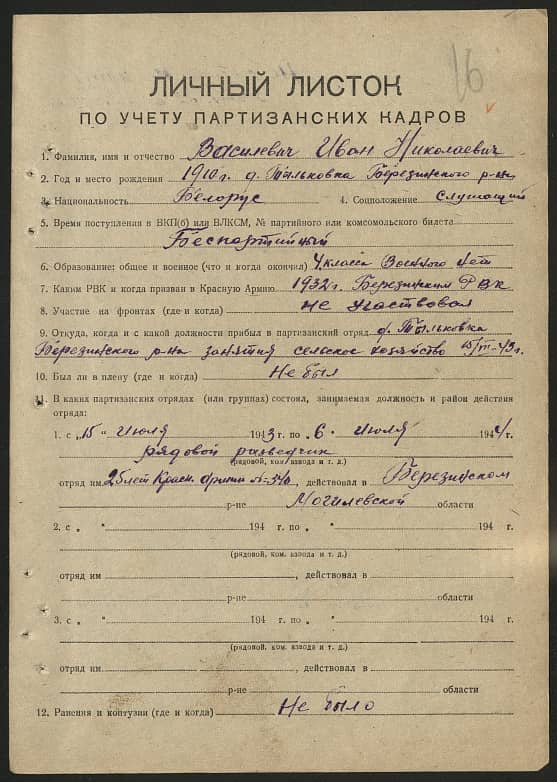 16
ЛИЧНЫЙ ЛИСТОК
ПО УЧЕТУ ПАРТИЗАНСКИХ КАДРОВ
1. Фамилия, имя и отчество Василевич Иван Николаевич
2. Год и место рождения 1910 г. д. Тыльковка Березинского р-на
3. Национальность Белорус 4. Соцположение Служащий
5. Время поступления в ВКП(б) или ВЛКСМ, № партийного или комсомольского билета
Беспартийный
6. Образование: общее и военное (что и когда окончил) 4 класса Военного нет
7. Каким РВК и когда призван в Красную Армию 1932 г. Березинским РВК
8. Участие на фронтах (где и когда) не участвовал
9. Откуда, когда и с какой должности прибыл в партизанский отряд д. Тыльковка
Березинского р-на занятия сельское хозяйство 15/VII-43 г.
10. Был ли в плену (где и когда) Не был
11. В каких партизанских отрядах (или группах) состоял, занимаемая должность и район действия
отряда:
1. с „15" июля 1943 г. по „6" июля 1944 г.
рядовой разведчик
(рядовой, ком. взвода и т. д.)
отряд им 25 лет Красн. Армии №-340, действовал в Березинском
р-не Могилевской области
2. с „ " 194 г. по „ " 194 г.
(рядовой, ком. взвода и т. д.)
отряд им , действовал в
р-не области
3. с „ " 194 г. по „ " 194 г.
(рядовой, ком. взвода и т. д.)
отряд им , действовал в
р-не области
12. Ранения и контузии (где и когда) Не было